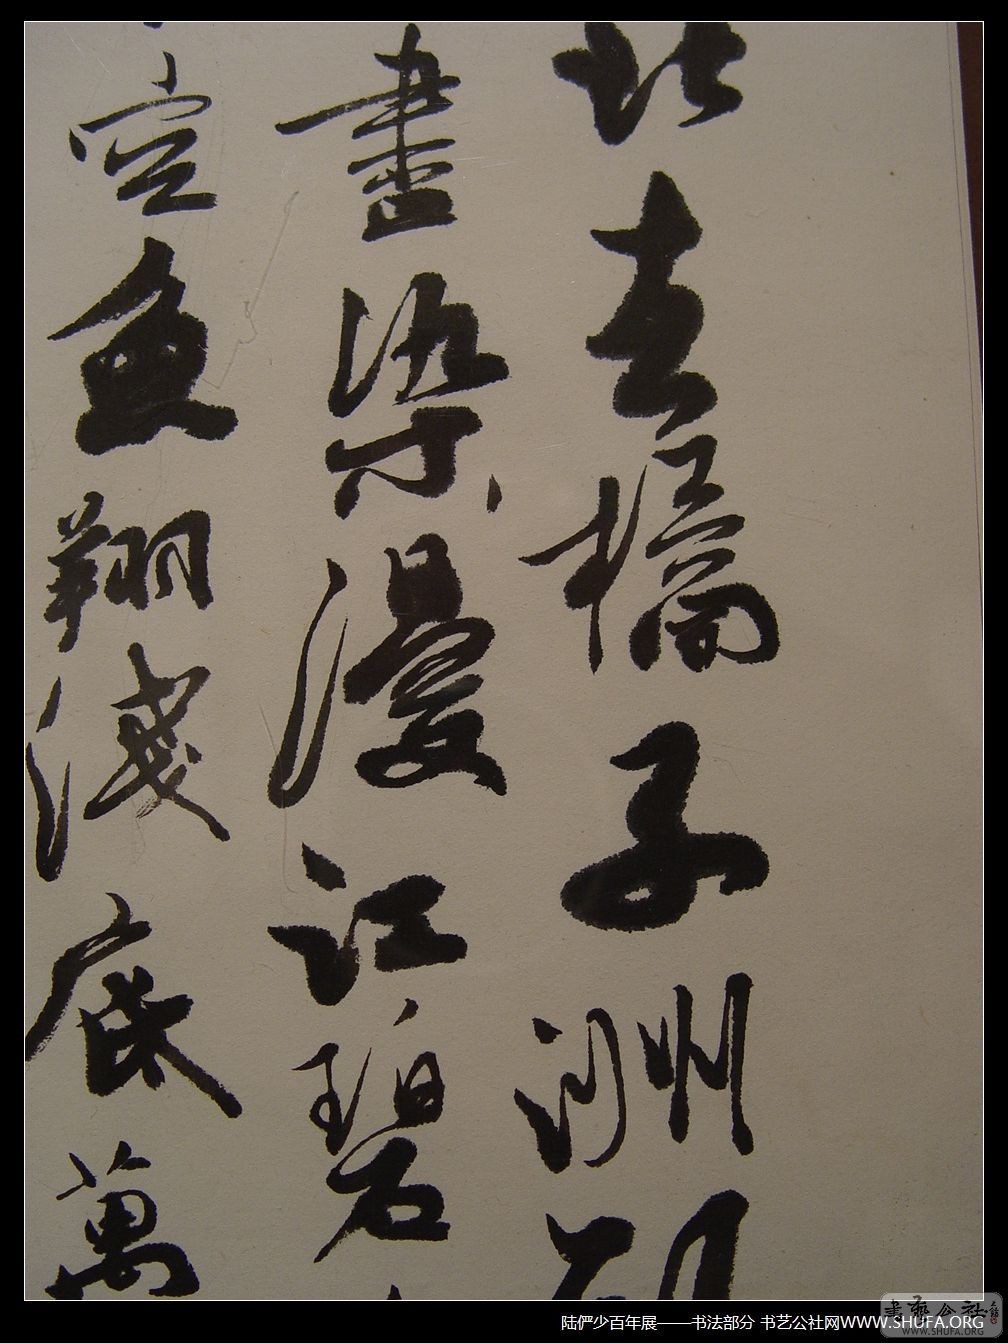 北去橘子洲
盡染漫江碧
空魚翔淺底萬
陆俨少百年展——书法部分 书艺公社网WWW.SHUFA.ORG
WWW.SHUFA.ORG